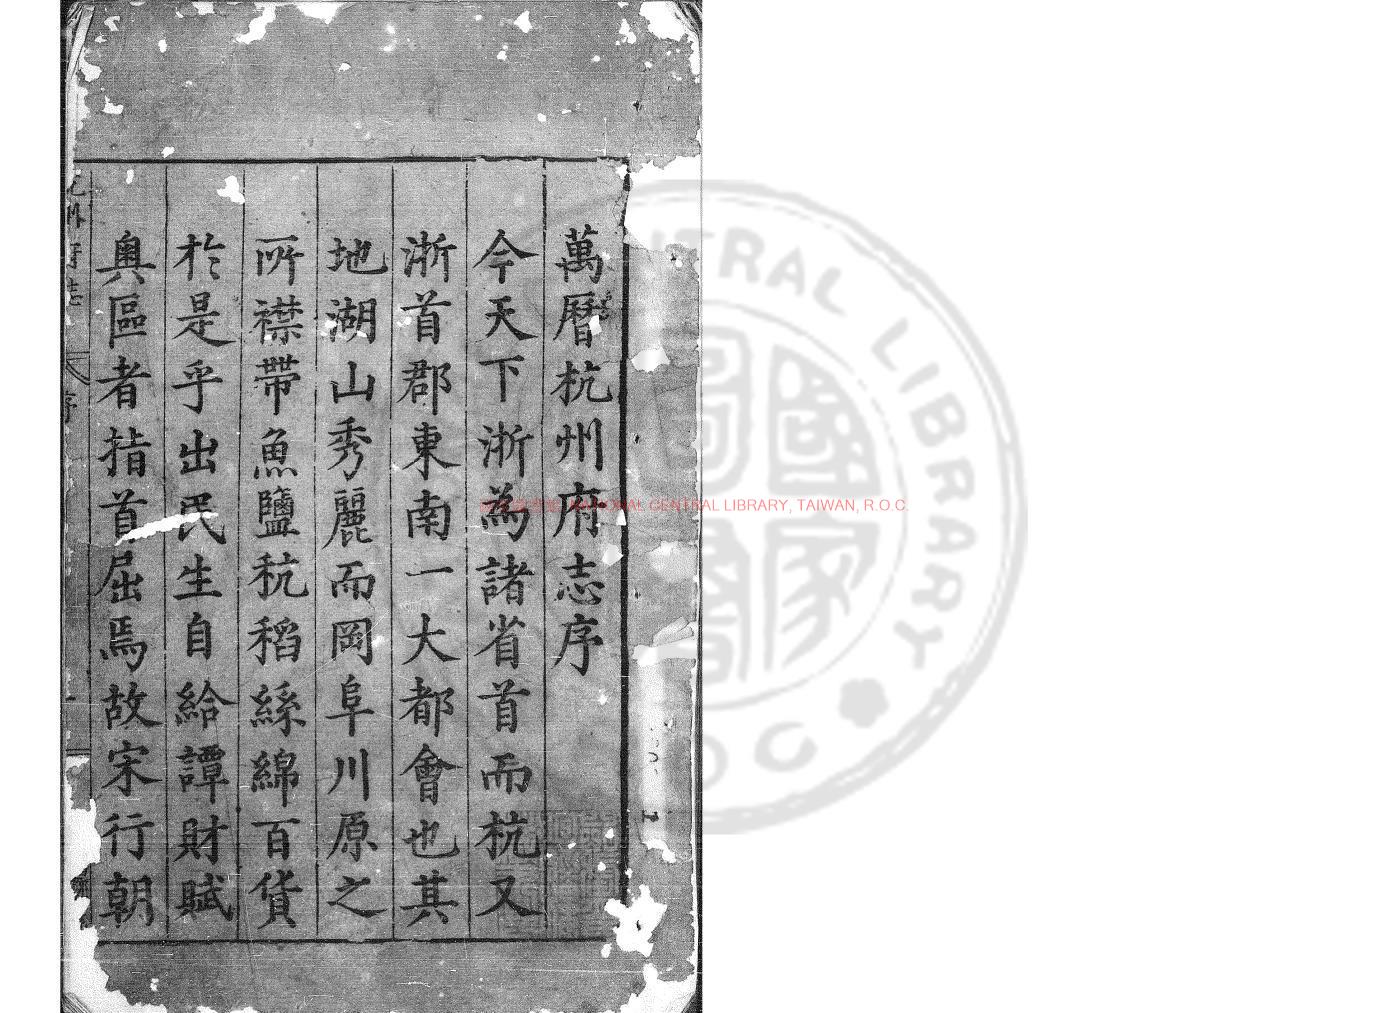 萬曆杭州府志序
今天下浙為諸省首而杭又
浙首郡東南一大都會也其
地湖山秀麗而岡阜川原之
所襟帶魚鹽秔稻絲綿百貨
於是乎出民生自給譚財賦
奧區者指首屈焉故宋行朝
州府志
序
NATIONAL CENTRAL LIBRARY, TAIWAN, R.O.C.